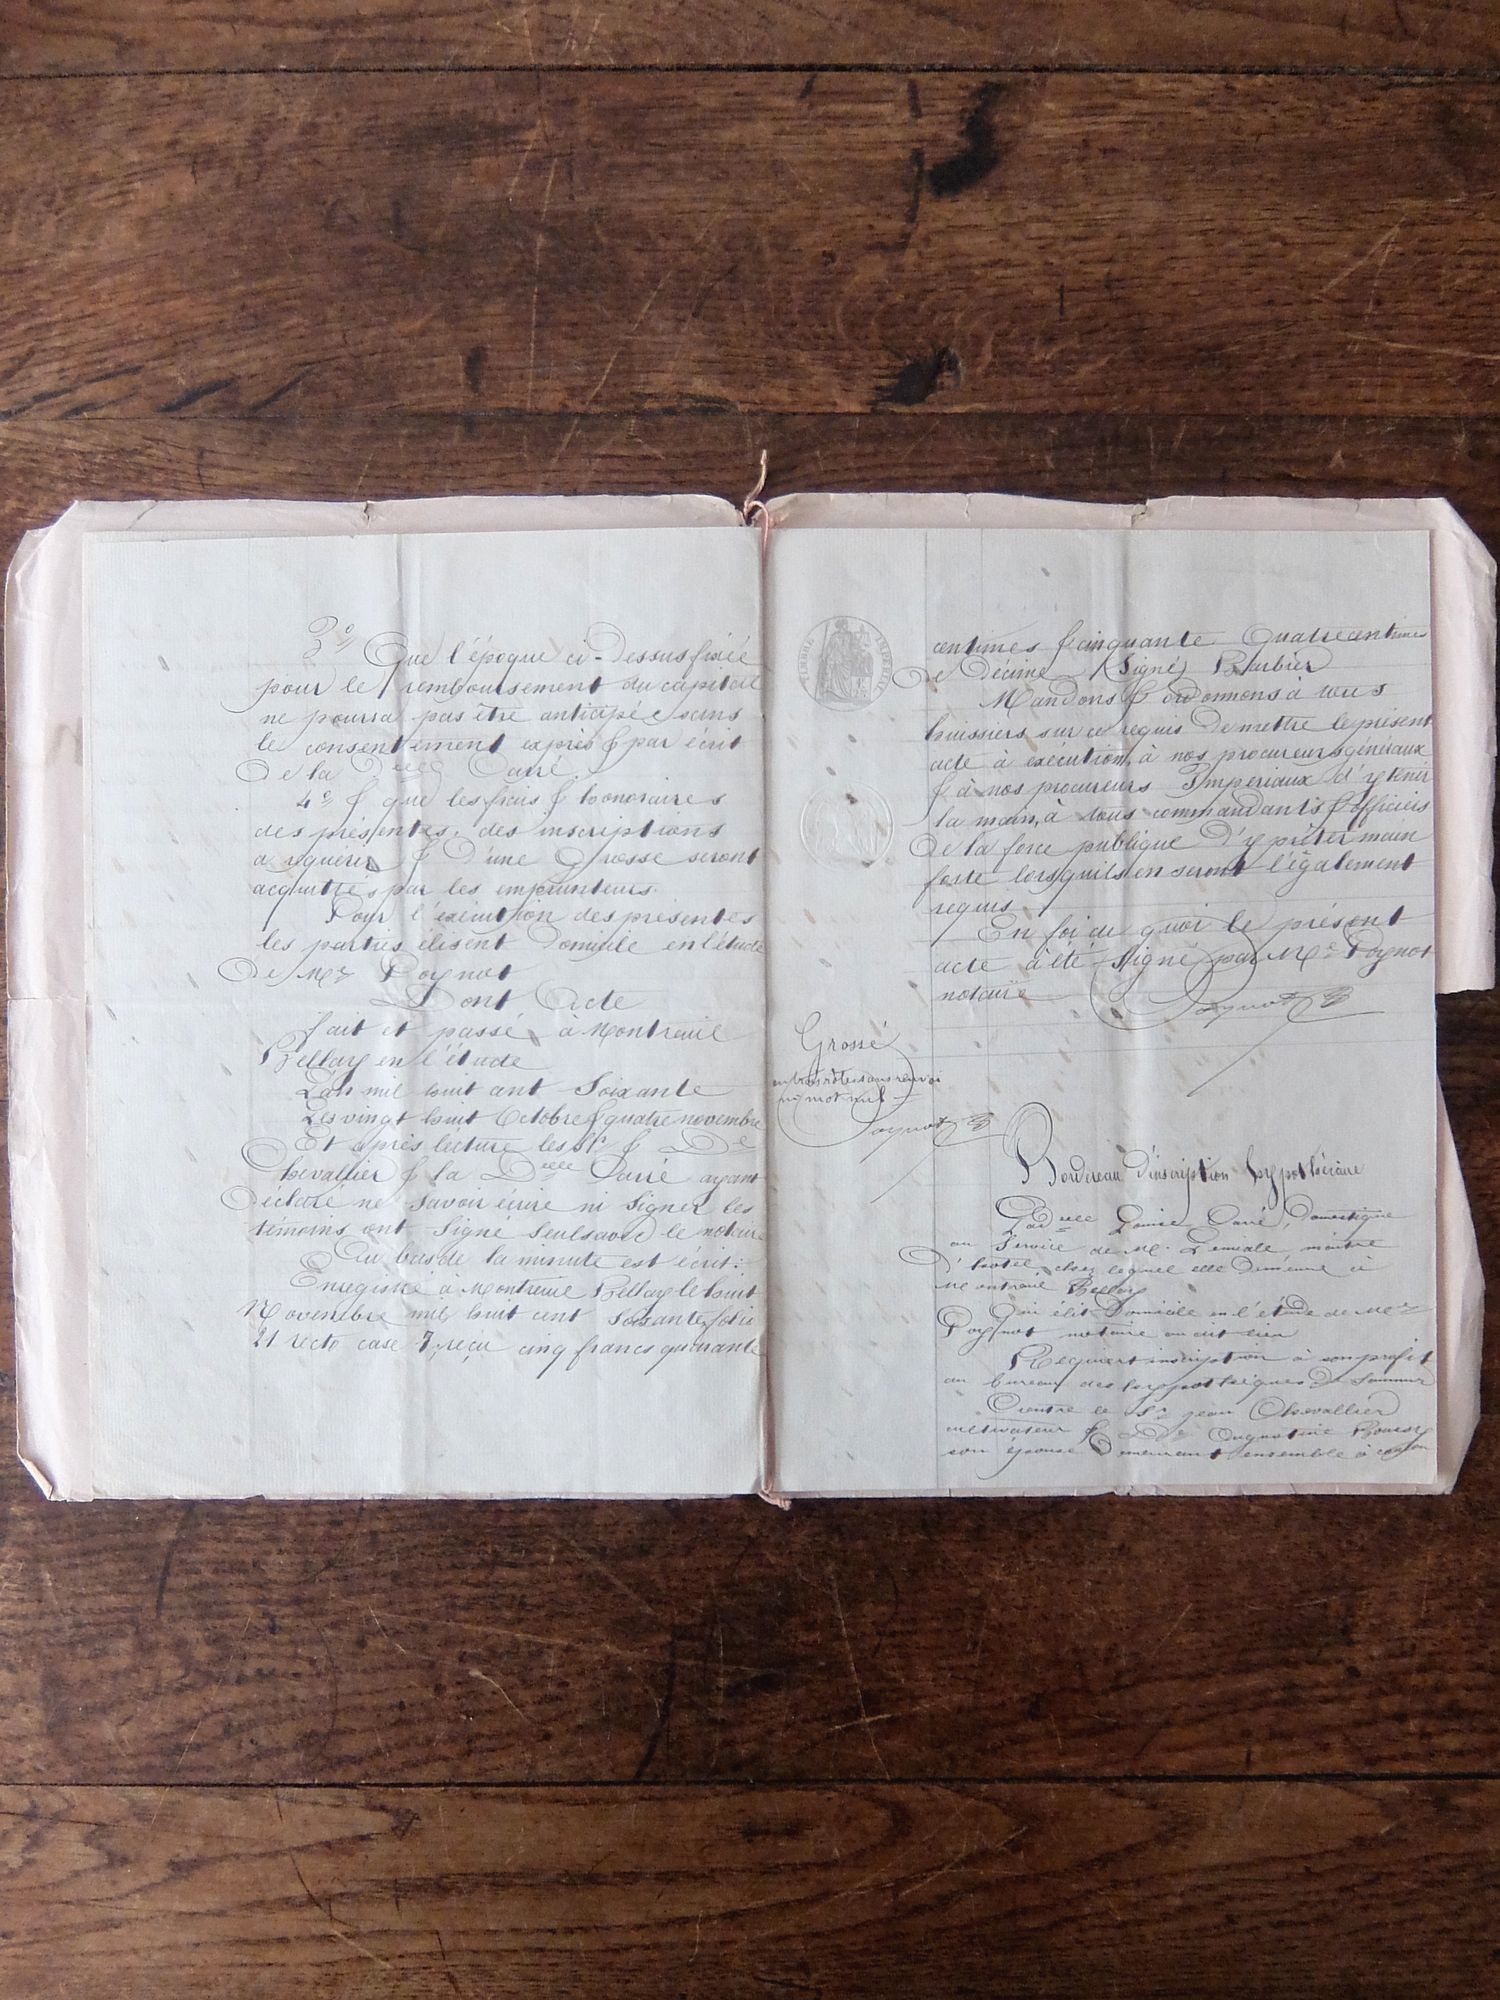 3º
Que l'époque ci-dessus fixée
pour le remboursement du capital
ne pourra pas être anticipée sans
le consentement exprès & par écrit
De la Delle Carré.
4º & que les frais & honoraires
des présentes, des inscriptions
a requérir & d'une Grosse seront
acquittés par les emprunteurs.
Pour l'exécution des présentes
les parties élisent Domicile en l'étude
De Me Poynot
Dont Acte
fait et passé à Montreuil
Bellay en l'étude
L'an mil huit cent Soixante
Les vingt huit Octobre & quatre novembre
Et après lecture les Sr & De
Chevallier & la Delle Carré ayant
Déclaré ne savoir écrire ni signer les
témoins ont signé seuls avec le notaire
Au bas de la minute est écrit:
Enregistré à Montreuil Bellay le huit
Novembre mil huit cent soixante, folio
21 recto case 7, reçu cinq francs quarante
TIMBRE IMPERIAL
centimes & cinquante Quatre centimes
De Décime Signé, Barbier
Mandons & ordonnons à tous
huissiers sur ce requis De mettre le présent
acte à exécution, à nos procureurs généraux
& à nos procureurs Impériaux d'y tenir
la main, à tous commandants & officiers
De la force publique D'y prêter main
forte lorsqu'ils en seront légalement
requis
En foi de quoi le présent
acte à été signé par Me Poynot
notaire
Poynot
Grossé
en trois rôles sans renvoi
ni mot nul
Poynot
Bordereau D'inscription hypothécaire
Par Delle Louise Carré, Domestique
au Service de Mr. maître
D'hôtel, chez lequel elle Demeure à
Montreuil Bellay
Qui élit Domicile en l'étude de Me
Poynot notaire au dit lieu
Requiert inscription à son profit
au bureau des hypothèques De Saumur
Contre le Sr Jean Chevallier
cultivateur & De Augustine
son épouse Demeurant ensemble à